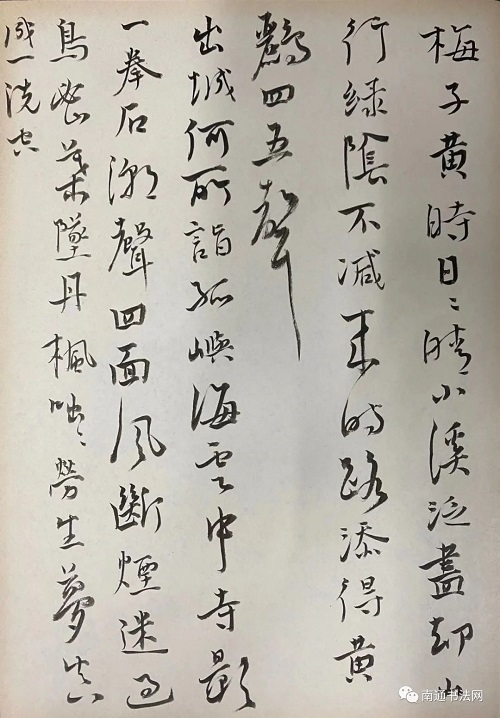 梅子黄時日〻晴小溪泛盡却山
行緑隂不減来時路添得黄
鸝四五聲
出城何所詣孤嶼海雲中寺影
一拳石潮聲四面風斷煙迷過
鳥葉墜丹楓咄〻勞生夢真
成一洗空
南通书法网